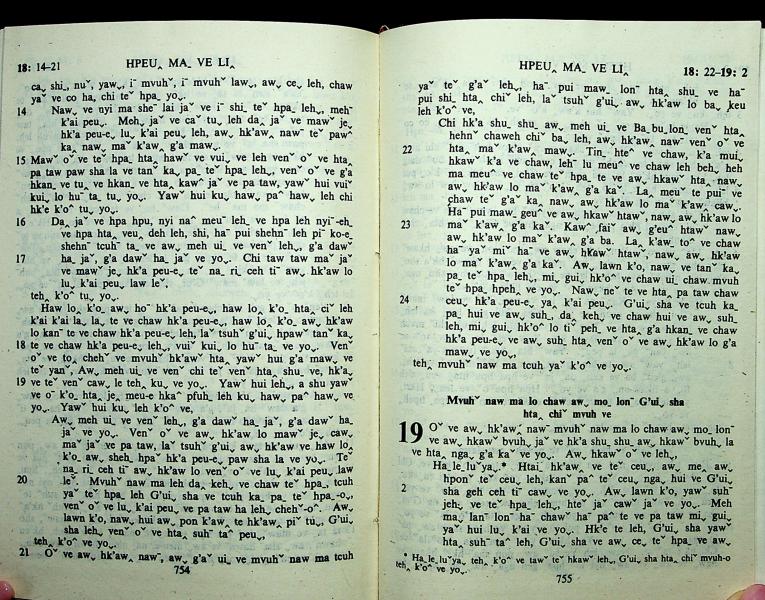 18: 14–21
HPEU‸ MA_ VE LI‸
ca‸ shi_ nuˇ, yaw‸, i¯ mvuhˇ, i¯ mvuhˇ law‸, aw‸ ce leh, chaw
yaˇ ve co ha, chi teˇ hpa_ yo‸.
14 Naw‸ ve nyi ma she¯ lai jaˇ ve i¯ shi_ teˇ hpa_ leh, meh¯
k'ai peu‸. Meh‸ jaˇ ve caˆ tu‸ leh da‸ jaˇ ve mawˇ je‸
hk'a peu-e‸ lu‸ k'ai peu‸ leh, aw‸ hk'aw‸ naw¯ teˇ pawˆ
ka‸ naw‸ maˇ k'awˆ g'a maw‸.
15 Mawˇ oˇ ve teˇ hpa_ hta‸ hawˇ ve vui‸ ve leh venˇ oˇ ve hta‸
pa taw paw sha la ve tanˇ ka‸ pa_ teˇ hpa_ leh‸, venˇ oˇ ve g'a
hkan_ ve tu‸ ve hkan_ ve hta‸ kawˆ jaˇ ve pa taw, yawˇ hui vuiˇ
kui‸ lo huˇ ta_ tu_ yo‸. Yawˇ hui ku‸ haw‸ paˆ haw‸ leh chi
hk'e k'oˆ tu_ yo‸.
16 Da‸ jaˇ ve hpa hpu, nyi naˆ meuˇ leh_ ve hpa leh nyi¯-eh_
ve hpa hta‸ veu_ deh leh, shi, ha¯ pui shehn¯ leh pi¯ ko-e_
shehn¯ tcuhˇ ta_ ve aw‸ meh ui_ ve venˇ leh‸, g'a dawˇ
17 ha_ jaˇ, g'a dawˇ ha_ jaˇ ve yo‸. Chi taw taw maˇ jaˇ
ve mawˇ je‸ hk'a peu-e_ teˇ na_ ri_ ceh ti¯ aw‸ hk'aw lo
lu‸ k'ai peu‸ law leˇ.
teh‸ k'oˆ tu_ yo‸.
Haw lo‸ k'o‸ aw‸ ho¯ hk'a peu-e‸, haw lo‸ k'o‸ hta‸ ciˇ leh
k'ai k'ai la_ la_ te ve chaw hk'a peu-e‸, haw lo‸ k'o‸ aw‸ hk'aw
lo kan¯ te ve chaw hk'a peu-e‸ leh, laˇ tsuhˇ g'ui‸ hpawˇ tanˇ ka‸
18 te ve chaw hk'a peu-e‸ leh‸, vuiˇ kui‸ lo huˇ ta_ ve yo‸. Venˇ
oˇ ve to‸ chehˇ ve mvuhˇ hk'awˇ hta‸ yawˇ hui g'a maw‸ ve
teˇ yanˇ, Aw‸ meh ui_ ve venˇ chi teˇ venˇ hta‸ shu_ ve, hk'a‸
19 ve teˇ venˇ caw‸ le teh‸ ku‸ ve yo‸. Yawˇ hui leh‸, a shu yaw
ve o¯ k'o_ hta‸ je‸ meu-e hkaˆ pfuh_ leh ku‸ haw‸ paˆ haw‸ ve
yo‸. Yawˇ hui ku‸ leh k'oˆ ve,
Aw‸ meh ui_ ve venˇ leh‸, g'a dawˇ ha_ jaˇ, g'a dawˇ ha_
jaˇ ve yo‸. Venˇ oˇ ve aw‸ hk'aw lo mawˇ je‸ caw‸
maˇ jaˇ ve pa taw, laˇ tsuhˇ g'ui‸ aw‸ hk'aw ve haw lo‸
k'o‸ aw‸ sheh_ hpaˇ hk'a peu-e‸ paw sha la ve yo‸. Teˇ
na_ ri_ ceh ti¯ aw‸ hk'aw lo venˇ oˇ ve lu‸ k'ai peu‸ law
20 leˇ. Mvuhˇ naw ma leh da‸ keh‸ ve chaw teˇ hpa_, tcuh
yaˇ teˇ hpa_ leh G'ui‸ sha ve tcuh ka‸ pa_ teˇ hpa_-o‸,
venˇ oˇ ve lu‸ k'ai peu‸ ve pa taw ha leh‸ chehˇ-oˆ. Aw‸
lawn k'o, naw‸ hui aw‸ pon k'aw‸ te hk'aw‸ piˇ tu‸, G'ui‸
sha leh‸ venˇ oˇ ve hta‸ suhˇ taˆ peu‸,
teh‸ k'oˆ ve yo‸.
21 Oˇ ve aw‸ hk'aw‸ naw¯, aw‸ g'aˇ ui_ ve mvuhˇ naw ma tcuh
754
HPEU‸ MA_ VE LI‸
18: 22–19: 2
yaˇ teˇ g'aˇ leh‸, ha¯ pui maw_ lon¯ hta‸ shu_ ve ha¯
pui shi_ hta‸ chiˇ leh, laˇ tsuhˇ g'ui‸ aw‸ hk'aw lo ba‸ keu
leh k'oˆ ve,
Chi hk'a shu_ shu_ aw‸ meh ui_ ve Ba‸bu‸lon_ venˇ hta‸
hehnˇ chaweh chiˇ ba‸ leh, aw‸ hk'aw‸ naw¯ venˇ oˇ ve
22 hta‸ maˇ k'aw‸ maw‸. Tin_ hteˆ ve chaw, k'a mui‸
hkawˇ k'a ve chaw, lehˇ lu meuˆ ve chaw leh beh‸ heh
ma meuˆ ve chaw teˇ hpa_ te ve aw‸ hkawˇ hta‸ naw‸
aw‸ hk'aw lo maˇ k'aw‸ g'a kaˇ. La‸ meuˇ te pui¯ ve
chaw teˇ g'aˇ ka‸ naw‸ aw‸ hk'aw lo maˇ k'aw‸ caw‸.
Ha¯ pui maw_ geuˆ ve aw‸ hkawˇ htawˇ, naw‸ aw‸ hk'aw lo
23 maˇ k'aw‸ g'a kaˇ. Kawˆ faiˇ aw‸ g'euˆ htawˇ naw‸
aw‸ hk'aw lo maˇ k'aw‸ g'a ba‸. La‸ k'aw_ toˆ ve chaw
haˇ yaˇ miˇ haˇ ve aw‸ hkawˇ htawˇ, naw‸ aw‸ hk'aw
lo maˇ k'aw‸ g'a kaˇ. Aw‸ lawn k'o, naw‸ ve tanˇ ka‸
pa_ teˇ hpa_ leh‸, mi_ gui_ hk'oˆ ve chaw ui_ chaw mvuh
teˇ hpa_ hpeh_ ve yo‸. Naw‸ neˇ te ve hta‸ pa taw chaw
24 ceu‸ hk'a peu-e‸ ya‸ k'ai peu‸. G'ui‸ sha ve tcuh ka_
pa_ hui ve aw‸ suh_ da‸ keh‸ ve chaw hui ve aw‸ suh_
leh, mi_ gui_ hk'oˆ lo tiˇ peh_ ve hta‸ g'a hkan_ ve chaw
hk'a peu-e‸ ve aw‸ suh_ hta‸ venˇ oˇ ve aw‸ hk'aw lo g'a
maw‸ ve yo‸,
teh‸ mvuhˇ naw ma tcuh yaˇ k'oˆ ve yo‸.
Mvuhˇ naw ma lo chaw aw‸ mo_ lonˇ G'ui‸ sha
hta‸ chiˇ mvuh ve
19 Oˇ ve aw‸ hk'aw‸ naw¯ mvuhˇ naw ma lo chaw aw‸ mo_ lon¯
ve aw‸ hkawˇ bvuh‸ jaˇ ve hk'a shu_ shu_ aw‸ hkawˇ bvuh‸ la
ve hta‸ nga‸ g'a kaˇ ve yo‸. Aw‸ hkawˇ oˇ ve leh‸,
Ha‸le‸luˇya‸.* Htai_ hk'aw‸ ve te ceu‸, aw‸ me‸ aw‸
hponˇ teˇ ceu‸ leh, kanˇ paˆ te ceu‸ nga‸ hui ve G'ui‸
2 sha geh ceh tiˆ caw‸ ve yo‸. Aw‸ lawn k'o, yawˇ suhˇ
jeh‸ ve teˇ hpa_ leh‸, hteˇ jaˇ cawˇ jaˇ ve yo‸. Meh
ma_ lanˇ lonˇ haˇ chawˇ haˇ paˆ te ve pa taw mi_ gui_
yaˇ hui lu‸ k'ai ve yo‸. Hk'e te leh‸, G'ui‸ sha yawˇ
hta‸ suhˇ taˆ leh, G'ui‸ sha ve aw‸ ce‸ teˇ hpa_ ve aw‸
* Ha‸le‸luˇya‸ teh‸ k'oˆ ve tawˇ teˇ hkawˇ leh‸, G'ui‸ sha hta‸ chiˇ mvuh-o
teh‸ k'oˆ ve yo‸.
755